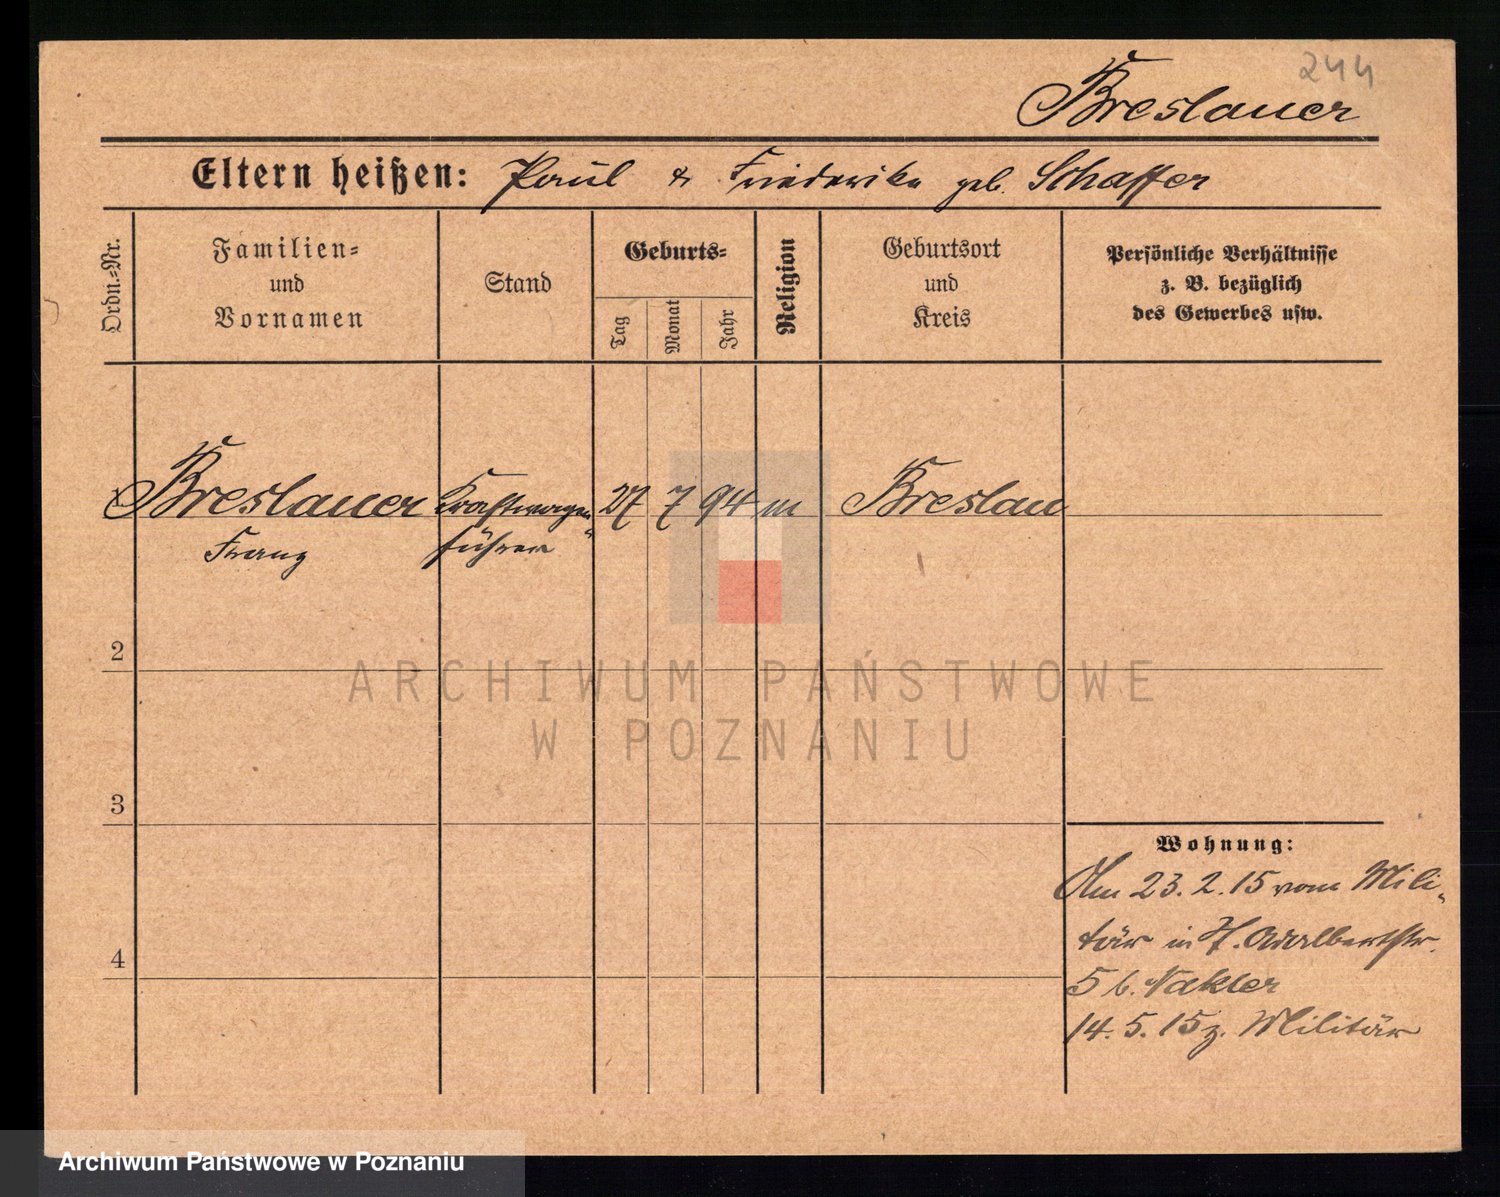 244
Breslauer
Eltern heißen: Paul & Friederike geb. Schaffer
Ordn.-Nr.
Familien-
und
Vornamen
Stand
Geburts-
Tag
Monat
Jahr
Religion
Geburtsort
und
Kreis
Persönliche Verhältnisse
z. B. bezüglich
des Gewerbes usw.
Breslauer Kraftwagen- 27 7 94 m Breslau
Franz führer
2
3
4
Wohnung:
Am 23. 2. 15 vom Mili-
tär in H. Adalbertstr.
5 b. Nakler
14. 5. 15 z. Militär
ARCHIWUM PAŃSTWOWE
W POZNANIU
Archiwum Państwowe w Poznaniu